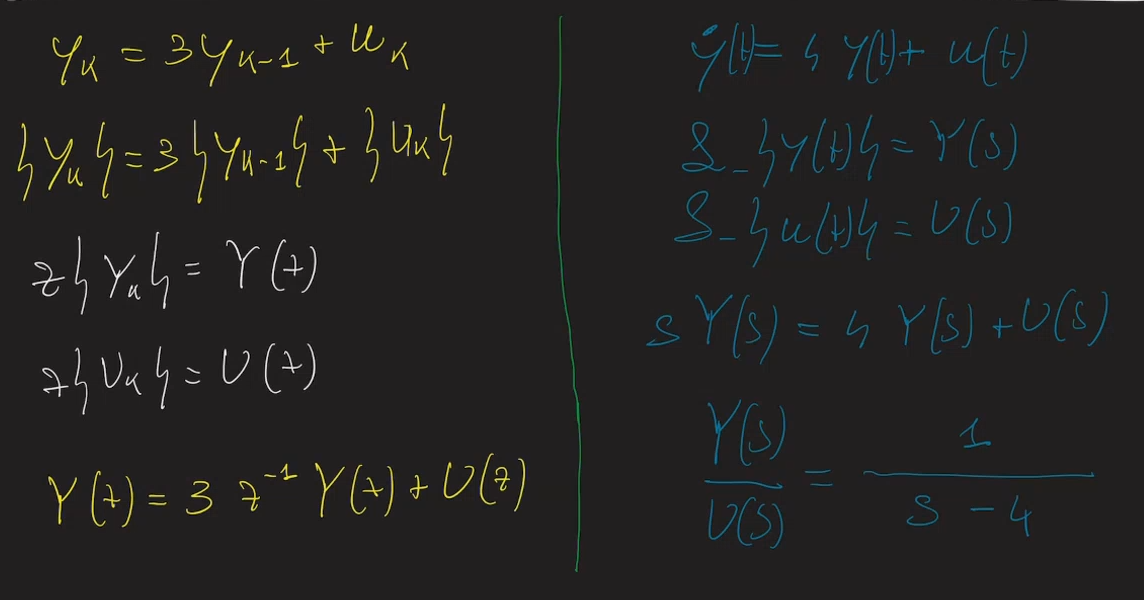 y_k = 3y_{k-1} + u_k
{y_k} = 3{y_{k-1}} + {u_k}
z{y_k} = Y(z)
z{u_k} = U(z)
Y(z) = 3 z^{-1} Y(z) + U(z)
ẏ(t) = 4 y(t) + u(t)
L_{y(t)} = Y(s)
L_{u(t)} = U(s)
s Y(s) = 4 Y(s) + U(s)
Y(s)/U(s) = 1/(s - 4)